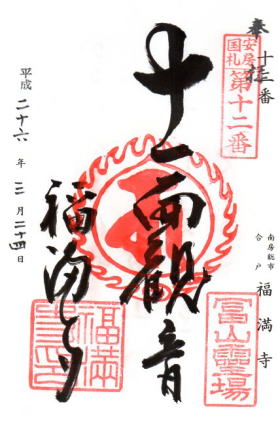 奉拝
十二番
安房
国札
第十二番
十一面観音
福満寺
平成二十六年三月二十四日
南房総市
合戸
福満寺
冨山霊場
福満